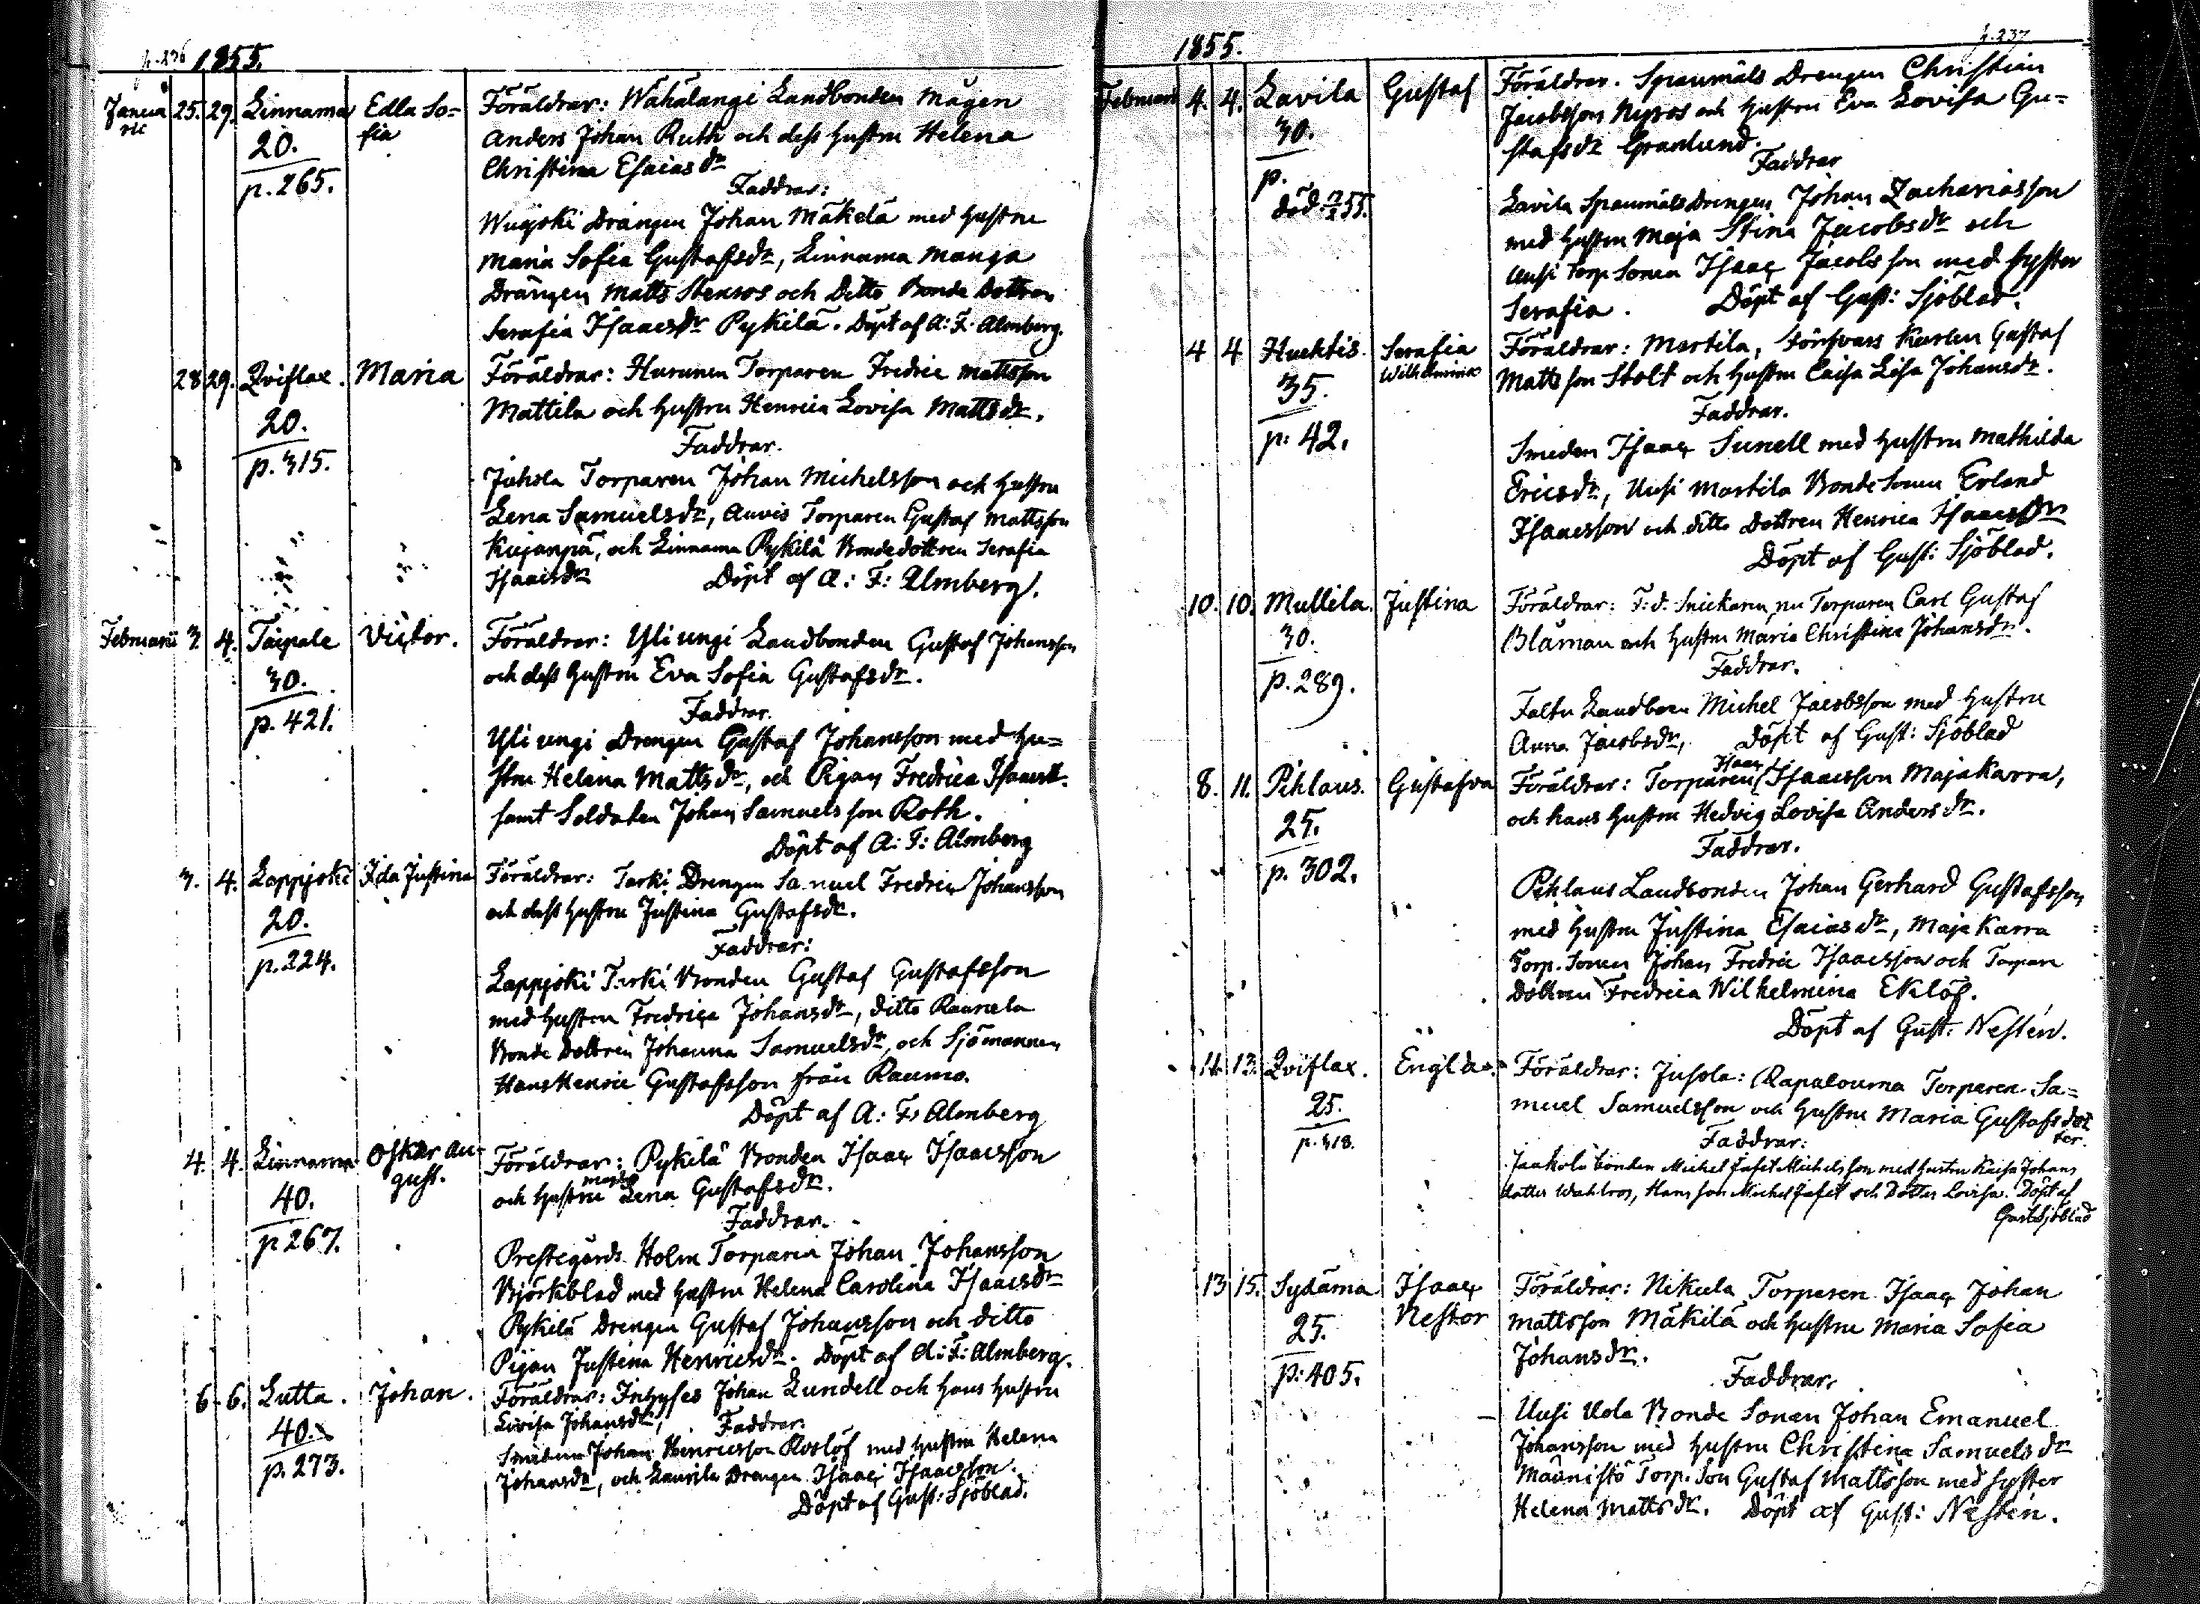 p. 236 1855.
Januarii 25. 29. Linnama Edla Sofia Föräldrar: Wahälangi Landbonden Mågen
20. Anders Johan Ruth och dess Hustru Helena
p. 265. Christina Esaiasdr
Faddrar:
Drängen Johan Mäkelä med Hustru
Maria Sofia Gustafsdr, Linnama Manga
Drängen Matts Stensros och Ditto Bonde Dottren
Serafia Isaacsdr Pykilä. Döpt af A: F: Almberg.
28 29. Qviflax. Maria Föräldrar: Hurunen Torparen Fredric Mattsson
20. Mattila och Hustru Henrica Lovisa Mattsdr.
p. 315. Faddrar.
Juhola Torparen Johan Michelsson och Hustru
Lena Samuelsdr, Auvis Torparen Gustaf Mattsson
Kujanpä, och Linnama Pykilä Bondedottren Serafia
Isaacsdr Döpt af A: F: Almberg.
Februarii 3. 4. Taipale Victor. Föräldrar: Yliungi Landbonden Gustaf Johansson
30. och dess Hustru Eva Sofia Gustafsdr.
p. 421. Faddrar.
Yliungi Drengen Gustaf Johansson med Hu=
stru Helena Mattsdr, och Pigan Fredrica Isaacsdr.
samt Soldaten Johan Samuelsson Roth.
Döpt af A: F: Almberg
3. 4. Lappjoki Ida Justina Föräldrar: Turki Drengen Samuel Fredric Johansson
20. och dess Hustru Justina Gustafsdr.
p. 224. Faddrar:
Lappjoki Turki Bonden Gustaf Gustafsson
med Hustru Fredrica Johansdr, ditto Raunela
Bonde Dottren Johanna Samuelsdr, och Sjömannen
Hans Henric Gustafsson från Raumo.
Döpt af A: F: Almberg
4. 4. Linnama Oskar August. Föräldrar: Pykilä Bonden Isaac Isaacsson
40. och Hustru Maja Lena Gustafsdr.
p 267. Faddrar.
Prestegårds Holm Torparen Johan Johansson
Björkblad med Hustru Helena Carolina Isaacsdr
Pykilä Drengen Gustaf Johansson och ditto
Pigan Justina Henricsdr. Döpt af A: F: Almberg.
6. 6. Lutta. Johan. Föräldrar: Inhyses Johan Lundell och Hans Hustru
40. Lovisa Johansdr, Faddrar.
p. 273. Smeden Johan Henricsson Roslöf med Hustru Helena
Johansdr, och Laurila Drengen Isaac Isaacsson.
Döpt af Gust: Sjöblad.
1855. p. 237
Februari 4. 4. Lavila Gustaf Föräldrar. Spanmäls Drengen Christian
30. Jacobsson Nyros och Hustru Eva Lovisa Gu=
p. stafsdr Granlund.
död 55. Faddrar
Lavila Spanmäls Drengen Johan Zachariasson
med Hustru Maja Stina Jacobsdr och
Uusi Torp Sonen Isaac Jacobsson med syster
Serafia. Döpt af Gust: Sjöblad.
4 4 Huhtis. Serafia Wilhelmina Föräldrar: Martila, Försvars Karlen Gustaf
35. Mattsson Stolt och Hustru Caisa Lisa Johansdr.
p: 42. Faddrar.
Smeden Isaac Sunell med Hustru Mathilda
Ericsdr, Uusi Martila Bonde Sonen Erland
Isaacsson och ditto Dottren Henrica Isaacsdr
Döpt af Gust: Sjöblad.
10. 10. Mullila. Justina Föräldrar: F. d. Snickaren, nu Torparen Carl Gustaf
30. Blåman och Hustru Maria Christina Johansdr.
p. 289. Faddrar.
Faltu Landboen Michel Jacobsson med Hustru
Anna Jacobsdr, Döpt af Gust: Sjöblad
8. 11. Pihlaus. Gustafva Föräldrar: Torparen Isaac Isaacsson Majakarra,
25. och hans Hustru Hedvig Lovisa Andersdr.
p. 302. Faddrar.
Pihlaus Landbonden Johan Gerhard Gustafsson
med Hustru Justina Esaiasdr, Majakarra
Torp. Sonen Johan Fredric Isaacsson och Torpare
Dottren Fredrica Wilhelmina Eklöf.
Döpt af Gust: Nestén.
11. 13. Qviflax. Engla. Föräldrar: Jusola: Rapalouma Torparen Sa=
25. muel Samuelsson och Hustru Maria Gustafsdotter.
p. 318. Faddrar:
Jaakola bonden Michel Jafet Michelsson med hustru Kaisa Johans
dotter Wahlros, Hans son Michel Jafet och Dotter Lovisa. Döpt af
Gust. Sjöblad
13 15. Sydänma Isaac Nestor Föräldrar: Nikula Torparen Isaac Johan
25. Mattsson Mäkilä och Hustru Maria Sofia
p: 405. Johansdr.
Faddrar.
Uusi Uola Bonde Sonen Johan Emanuel
Johansson med Hustru Christina Samuelsdr
Männistö Torp. Son Gustaf Mattsson med syster
Helena Mattsdr. Döpt af Gust: Nestén.